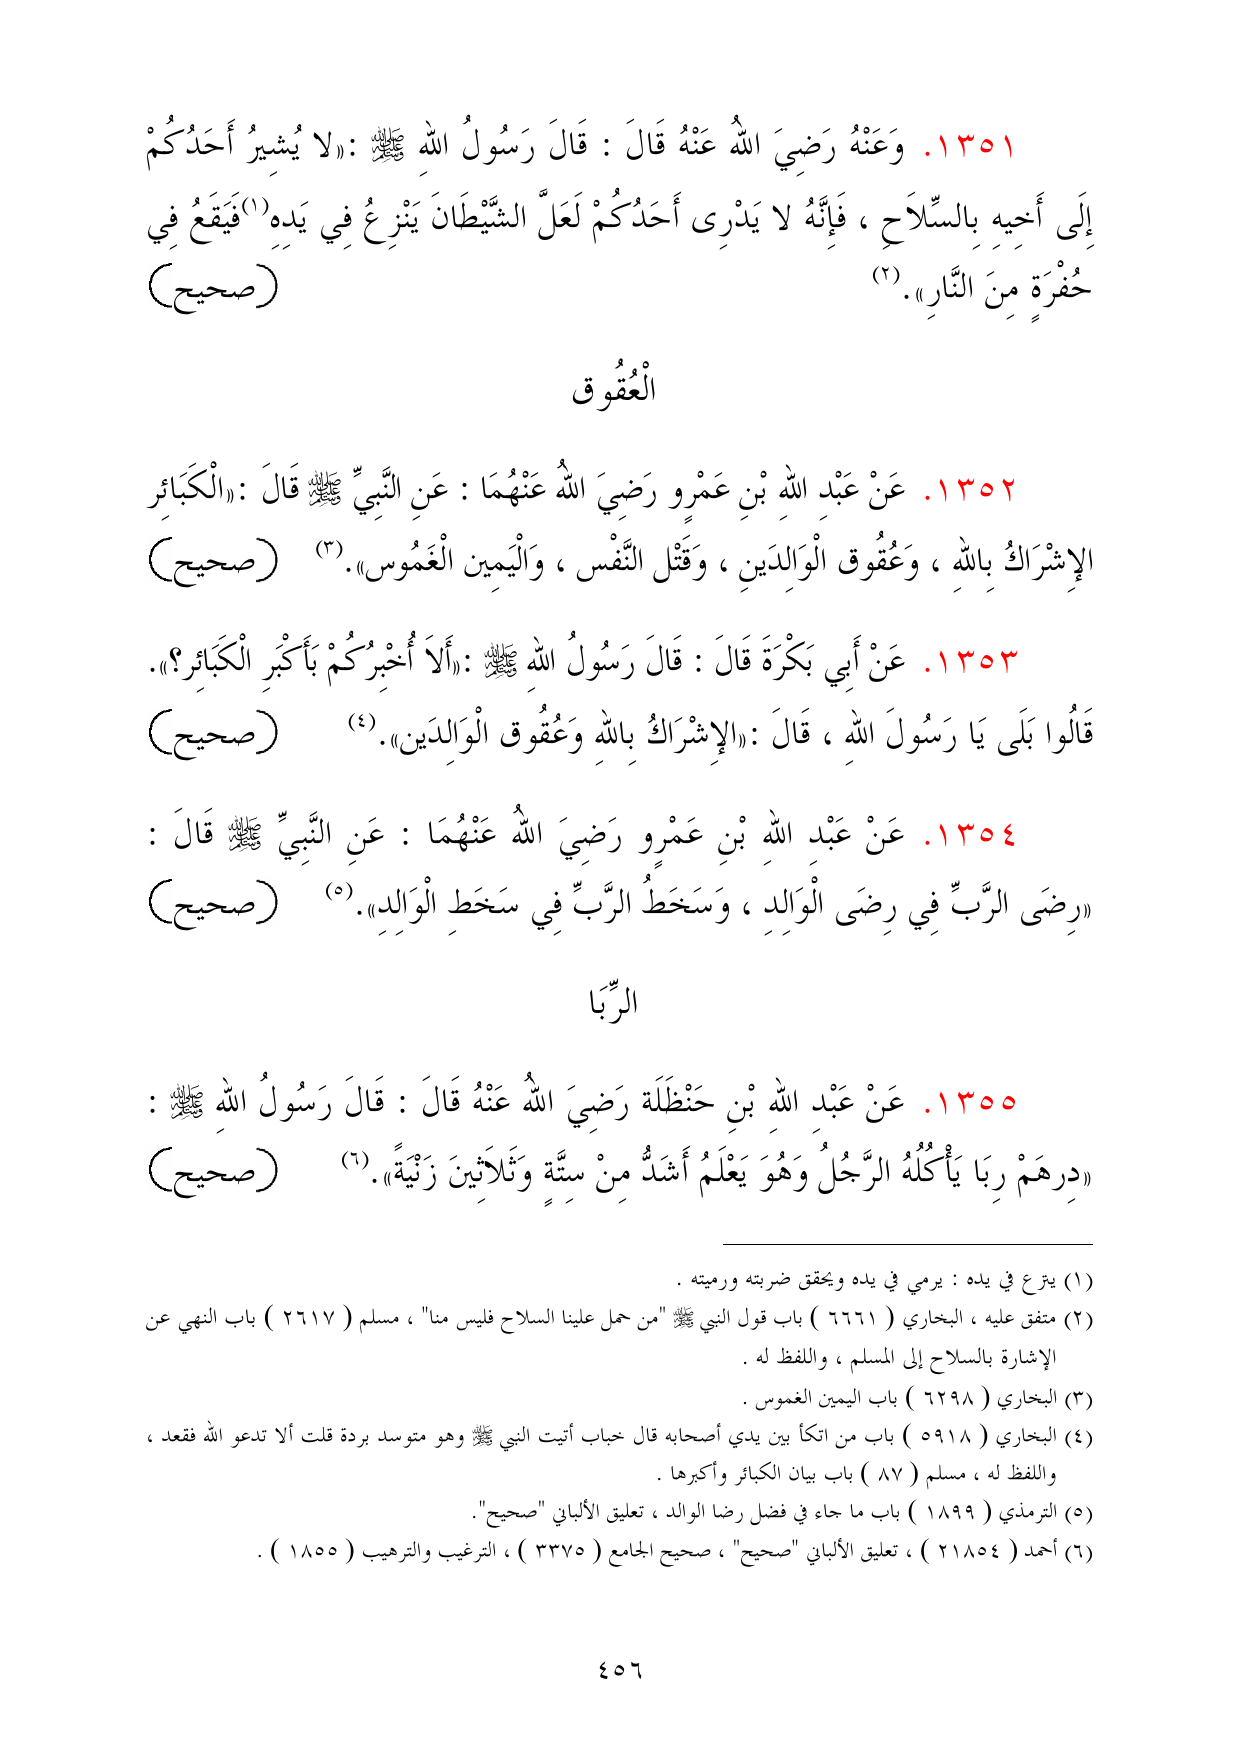 ١٣٥١. وَعَنْهُ رَضِيَ اللهُ عَنْهُ قَالَ : قَالَ رَسُولُ اللهِ ﷺ :«لا يُشِيرُ أَحَدُكُمْ
إِلَى أَخِيهِ بِالسِّلاَحِ ، فَإِنَّهُ لا يَدْرِى أَحَدُكُمْ لَعَلَّ الشَّيْطَانَ يَنْزِعُ فِي يَدِهِ(١)فَيَقَعُ فِي
حُفْرَةٍ مِنَ النَّارِ».(٢) (صحيح)
الْعُقُوق
١٣٥٢. عَنْ عَبْدِ اللهِ بْنِ عَمْرٍو رَضِيَ اللهُ عَنْهُمَا : عَنِ النَّبِيِّ ﷺ قَالَ :«الْكَبَائِر
الإِشْرَاكُ بِاللهِ ، وَعُقُوق الْوَالِدَينِ ، وَقَتْل النَّفْس ، وَالْيَمِين الْغَمُوس».(٣) (صحيح)
١٣٥٣. عَنْ أَبِي بَكْرَةَ قَالَ : قَالَ رَسُولُ اللهِ ﷺ :«أَلاَ أُخْبِرُكُمْ بَأَكْبَرِ الْكَبَائِر؟».
قَالُوا بَلَى يَا رَسُولَ اللهِ ، قَالَ :«الإِشْرَاكُ بِاللهِ وَعُقُوق الْوَالِدَين».(٤) (صحيح)
١٣٥٤. عَنْ عَبْدِ اللهِ بْنِ عَمْرٍو رَضِيَ اللهُ عَنْهُمَا : عَنِ النَّبِيِّ ﷺ قَالَ :
«رِضَى الرَّبِّ فِي رِضَى الْوَالِدِ ، وَسَخَطُ الرَّبِّ فِي سَخَطِ الْوَالِدِ».(٥) (صحيح)
الرِّبَا
١٣٥٥. عَنْ عَبْدِ اللهِ بْنِ حَنْظَلَة رَضِيَ اللهُ عَنْهُ قَالَ : قَالَ رَسُولُ اللهِ ﷺ :
«دِرهَمْ رِبَا يَأْكُلُهُ الرَّجُلُ وَهُوَ يَعْلَمُ أَشَدُّ مِنْ سِتَّةٍ وَثَلاَثِينَ زَنْيَةً».(٦) (صحيح)
(١) ينزع في يده : يرمي في يده ويحقق ضربته ورميته .
(٢) متفق عليه ، البخاري ( ٦٦٦١ ) باب قول النبي ﷺ "من حمل علينا السلاح فليس منا" ، مسلم ( ٢٦١٧ ) باب النهي عن
الإشارة بالسلاح إلى المسلم ، واللفظ له .
(٣) البخاري ( ٦٢٩٨ ) باب اليمين الغموس .
(٤) البخاري ( ٥٩١٨ ) باب من اتكأ بين يدي أصحابه قال خباب أتيت النبي ﷺ وهو متوسد بردة قلت ألا تدعو الله فقعد ،
واللفظ له ، مسلم ( ٨٧ ) باب بيان الكبائر وأكبرها .
(٥) الترمذي ( ١٨٩٩ ) باب ما جاء في فضل رضا الوالد ، تعليق الألباني "صحيح".
(٦) أحمد ( ٢١٨٥٤ ) ، تعليق الألباني "صحيح" ، صحيح الجامع ( ٣٣٧٥ ) ، الترغيب والترهيب ( ١٨٥٥ ) .
٤٥٦